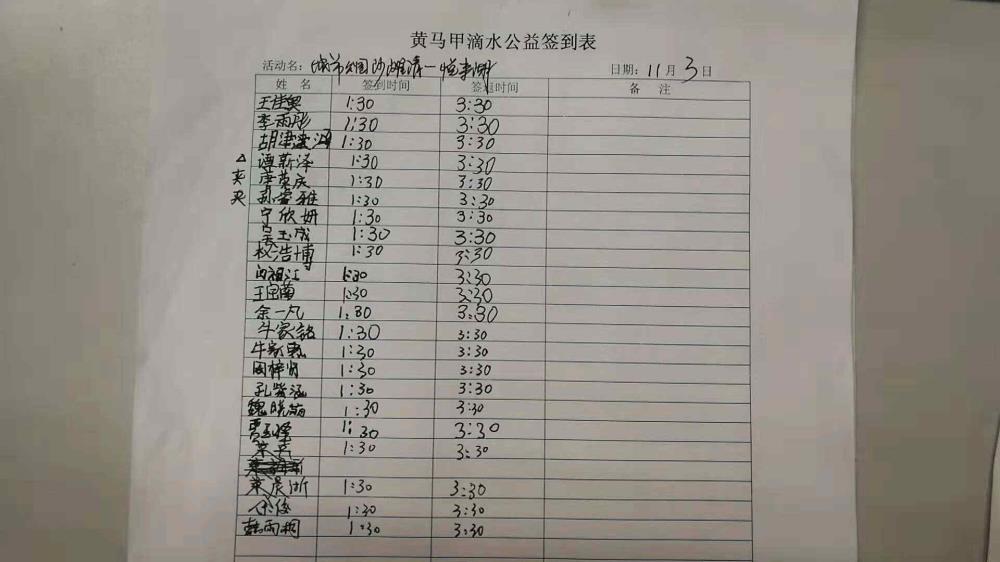 黄马甲滴水公益签到表
活动名： 城市公园 日期：11月3日
姓 名 签到时间 签退时间 备 注
王佳奥 1:30 3:30
李雨彤 1:30 3:30
胡 1:30 3:30
谭新泽 1:30 3:30
唐英庆 1:30 3:30
孙睿雅 1:30 3:30
宁欣妍 1:30 3:30
吴玉成 1:30 3:30
权浩博 1:30 3:30
祖江 1:30 3:30
王 1:30 3:30
余一凡 1:30 3:30
牛家铭 1:30 3:30
牛家 1:30 3:30
周梓 1:30 3:30
孔紫涵 1:30 3:30
魏晓萌 1:30 3:30
贾 1:30 3:30
1:30 3:30
晨浙 1:30 3:30
1:30 3:30
韩雨桐 1:30 3:30